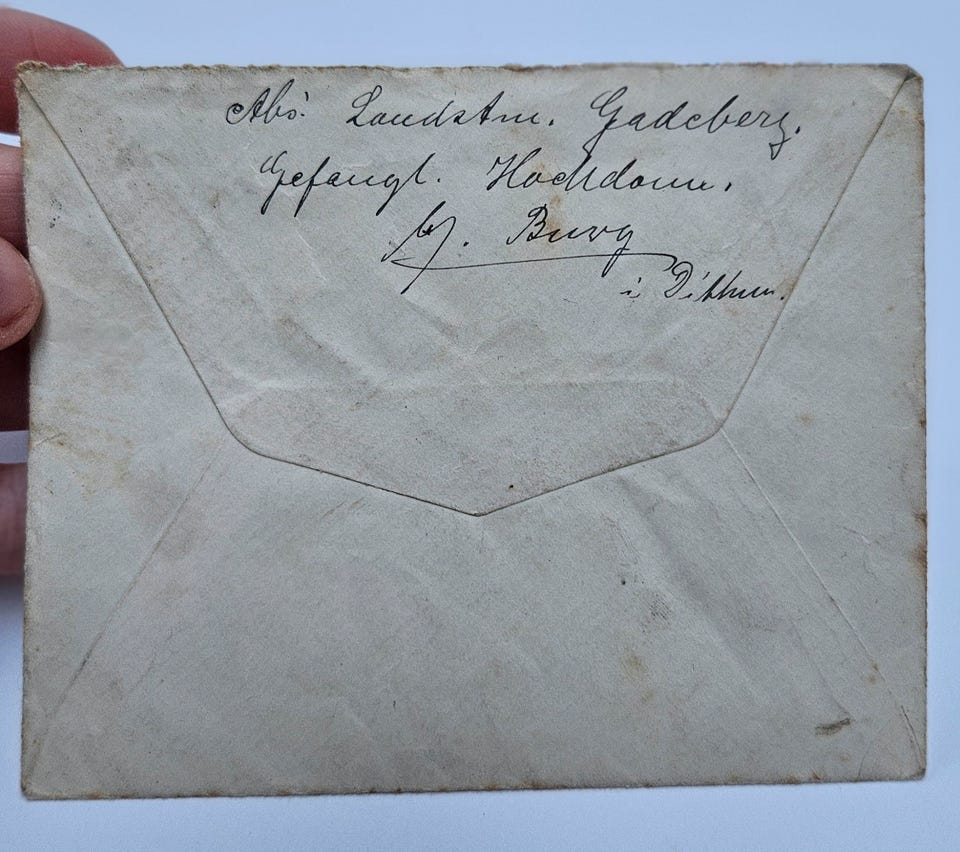 Abs. Landstm. Gadeberg.
Gefangl. Hochdonn.
b/. Burg
i Dithm.